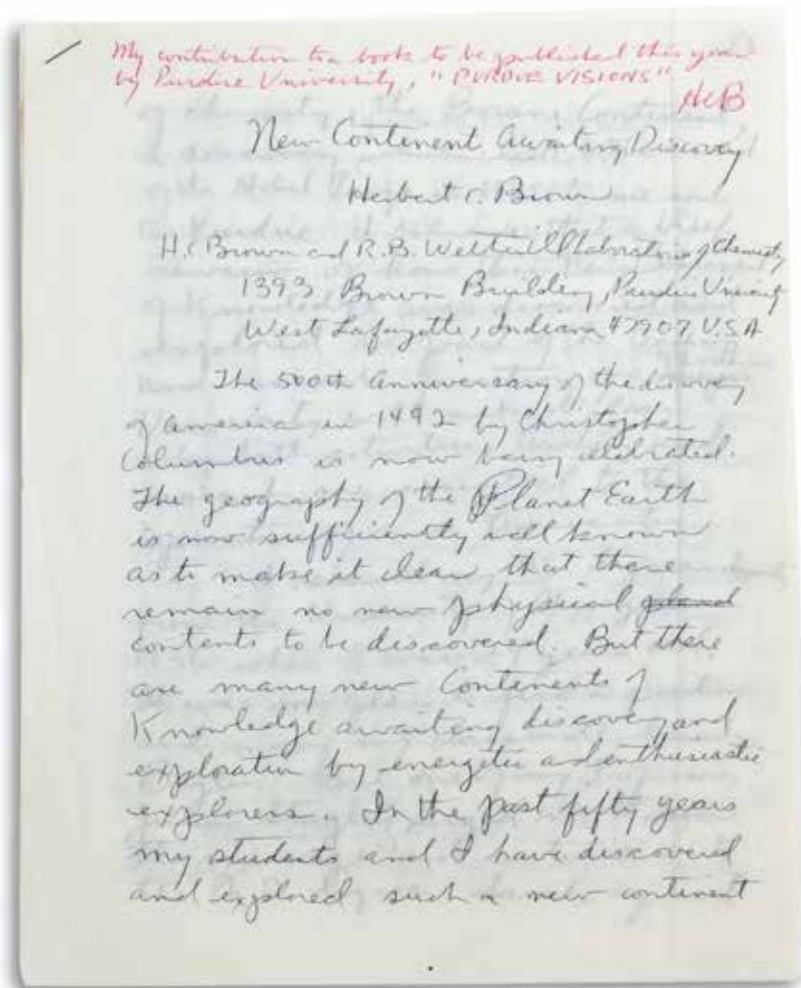 My contribution to a book to be published this year
by Purdue University, "PURDUE VISIONS"
HCB
New Continent Awaiting Discovery
Herbert C. Brown
H.C. Brown and R.B. Wetherill Laboratories of Chemistry
1393 Brown Building, Purdue University
West Lafayette, Indiana 47907 U.S.A
The 500th anniversary of the discovery
of America in 1492 by Christopher
Columbus is now being celebrated.
The geography of the Planet Earth
is now sufficiently well known
as to make it clear that there
remain no new physical
contents to be discovered. But there
are many new Continents of
Knowledge awaiting discovery and
exploration by energetic and enthusiastic
explorers. In the past fifty years
my students and I have discovered
and explored such a new continent